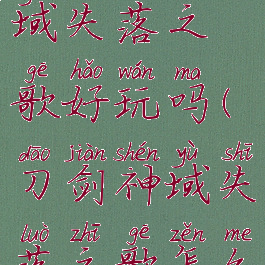 域失落之
gē hǎo wán ma
歌好玩吗(
dāo jiàn shén yù shī
刀剑神域失
luò zhī gē zěn me
落之歌怎么